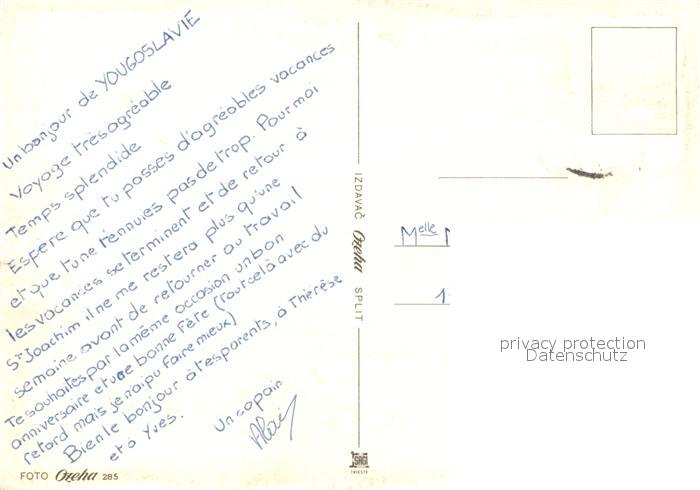 Un bonjour de YOUGOSLAVIE
Voyage très agréable
Temps splendide
Espere que tu passes d'agréables vacances
et que tu ne t'ennuies pas de trop. Pour moi
les vacances se terminent et de retour à
St Joachim il ne me restera plus qu'une
semaine avant de retourner au travail
Te souhaites par la même occasion un bon
anniversaire et une bonne Fête (Tout cela avec du
retard mais je n'ai pu faire mieux)
Bien le bonjour à tes parents, à Thérèse
et à Yves.
Un copain
Alain
IZDAVAČ Ozeha SPLIT
Melle
1
privacy protection
Datenschutz
TRIESTE
FOTO Ozeha 285